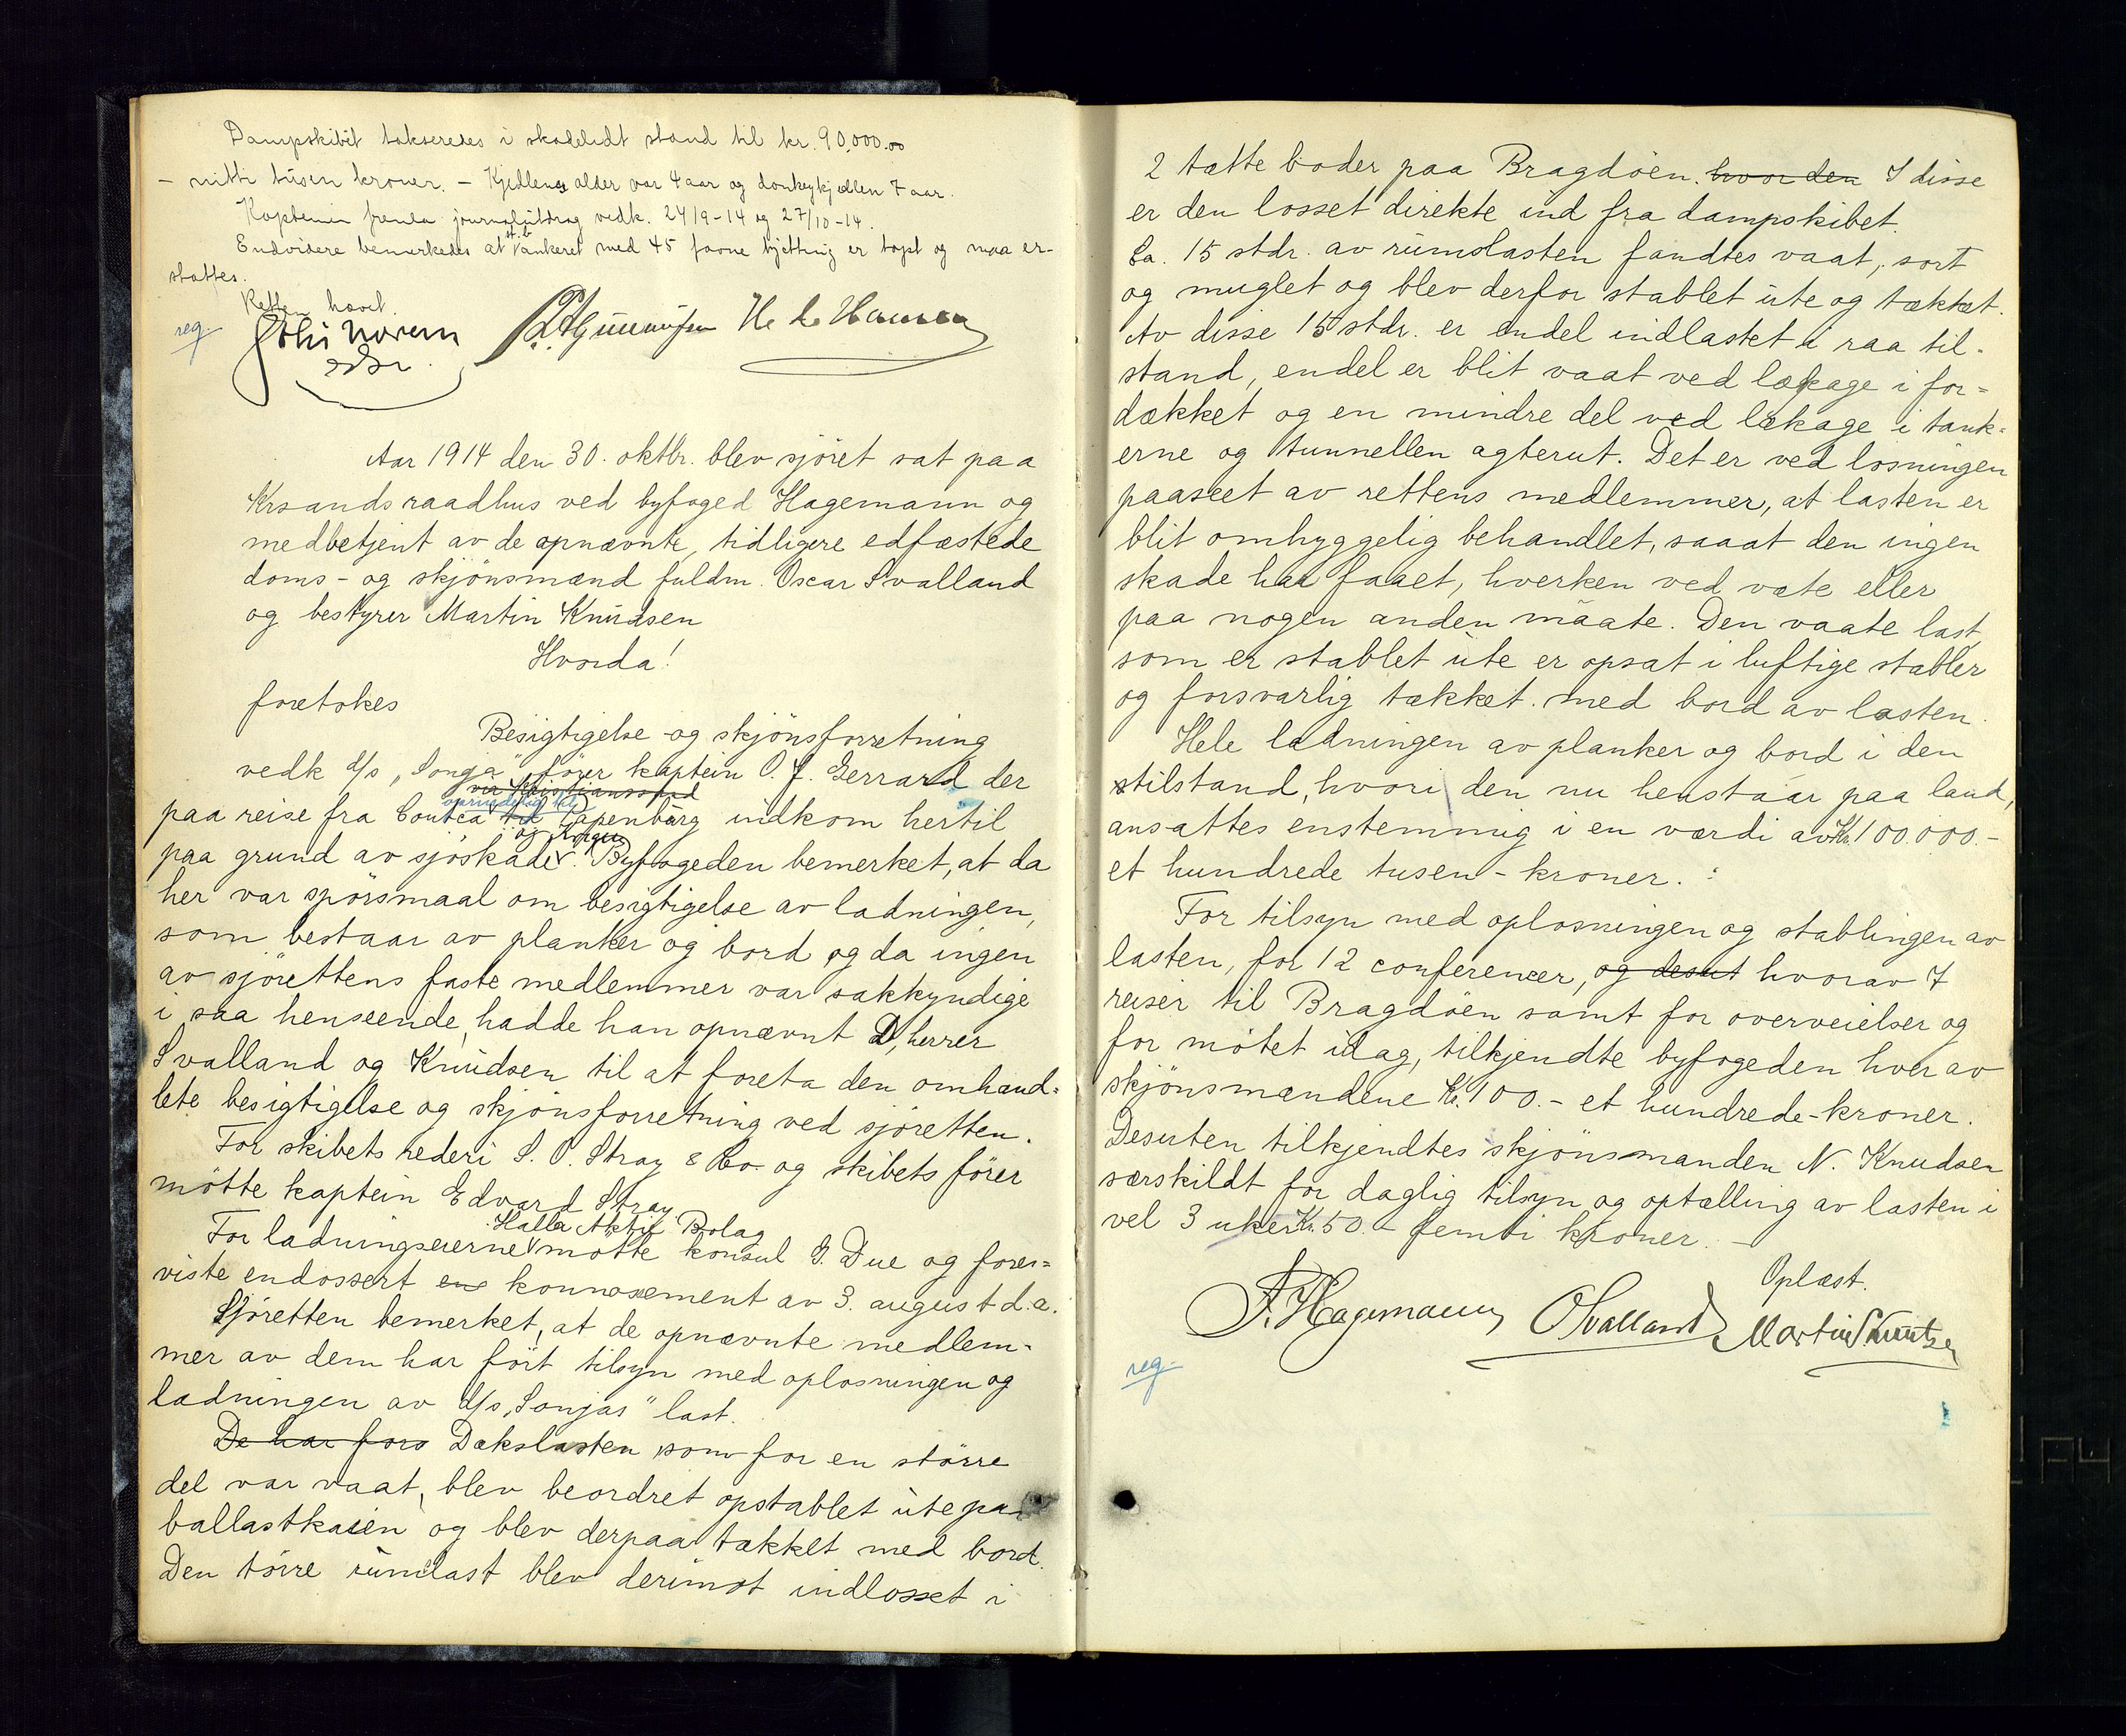 Dampskibet takseredes i skadelidt stand til kr. 90,000.00
– nitti tusen kroner. – Kjedlens alder var 4 aar og donkeykjedlen 7 aar.
Kaptemin fremla journaluitdrag vedk. 24/9-14 og 27/10-14.
st. b
Endvidere bemerkedes at ankeret med 45 favne kjetting er tapt og maa er-
stattes.
Retten hævet.
reg.
Aar 1914 den 30. oktbr. blev sjöret sat paa
Krsands raadhus ved byfoged Hagemann og
medbetjent av de opnævnte, tidligere edfæstede
doms- og skjönsmænd fuldm. Oscar Svalland
og bestyrer Martin Knudsen
Hvorda!
foretokes
Besigtigelse og skjönsforretning
vedk d/s „Sonja" förer kaptein O. J. Gerrard der
via Kristianssted
oprindelig til
paa reise fra Contca til Papenburg indkom hertil
og Kragen
paa grund av sjöskade. Byfogeden bemerket, at da
her var spörsmaal om besigtigelse av ladningen,
som bestaar av planker og bord og da ingen
av sjörettens faste medlemmer var sakkyndige
i saa henseende, hadde han opnævnt D, herrer
Svalland og Knudsen til at foreta den omhand-
lete besigtigelse og skjönsforretning ved sjöretten.
For skibets rederi S. O. Stray & Co. og skibets förer
mötte kaptein Edvard Stray.
Halla Aktie Bolag
For ladningseierne mötte konsul G. Due og fores-
viste endossert en konnosement av 3. august d.a.
Sjöretten bemerket, at de opnævnte medlem-
mer av dem har fört tilsyn med oplosningen og
ladningen av d/s „Sonjas" last.
De har fors Dækslasten som for en större
del var vaat, blev beordret opstablet ute paa
ballastkaien og blev derpaa tækket med bord.
Den törre rumlast blev derimot indlosset i
2 tætte boder paa Bragdöen. hvor den I disse
er den losset direkte ind fra dampskibet.
Ca. 15 stdr. av rumslasten fandtes vaat, sort
og muglet og blev derfor stablet ute og tækket.
Av disse 15 stdr. er endel indlastet i raa til-
stand, endel er blit vaat ved lækage i for-
dækket og en mindre del ved lækage i tank-
erne og tunnellen agterut. Det er ved losningen
paaseet av rettens medlemmer, at lasten er
blit omhyggelig behandlet, saaat den ingen
skade har faaet, hverken ved væte eller
paa nogen anden maate. Den vaate last,
som er stablet ute er opsat i luftige stabler
og forsvarlig tækket. med bord av lasten.
Hele ladningen av planker og bord i den
tilstand, hvori den nu henstaar paa land,
ansattes enstemmig i en værdi av Kr. 100.000.-
et hundrede tusen - kroner.
For tilsyn med oplosningen og stablingen av
lasten, for 12 conferencer, og desut hvorav 7
reiser til Bragdöen samt for overveielser og
for mötet idag, tilkjendte byfogeden hver av
skjönsmændene Kr. 100.- et hundrede-kroner.
Desuten tilkjendtes skjönsmanden N. Knudsen
særskildt for daglig tilsyn og optælling av lasten i
vel 3 uker Kr. 50.- femti kroner. –
Oplæst.
F. Hagemann OSvalland Martin Knutsen
reg.